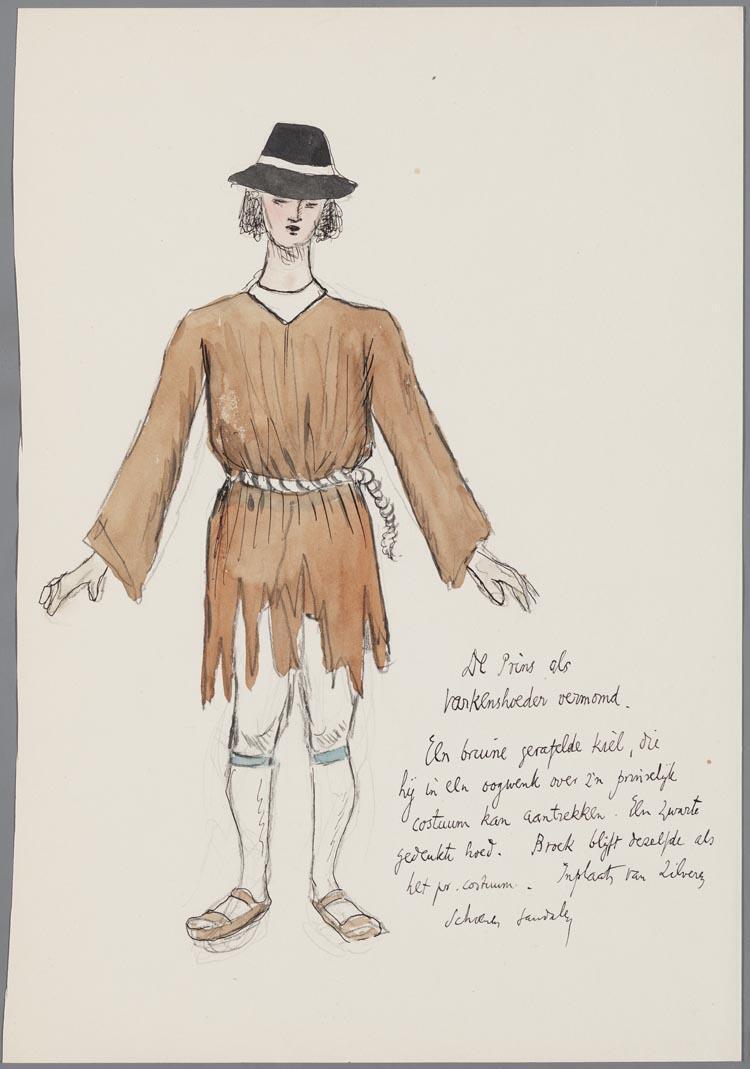 De Prins als
varkenshoeder vermomd.
Een bruine gerafelde kiel, die
hij in een oogwenk over z'n prinselijk
costuum kan aantrekken. Een zwarte
gedeukte hoed. Broek blijft dezelfde als
het pr. costuum. Inplaats van zilveren
schoenen sandalen